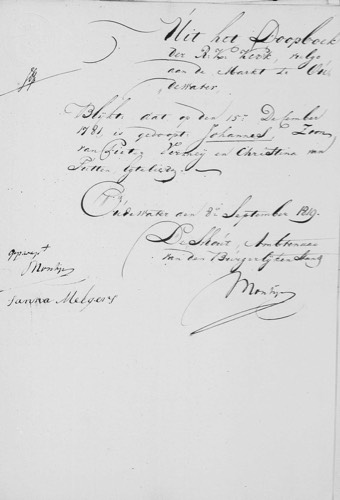 Uit het Doopboek
der R. K. Kerk, 
aan de Markt te Ou
dewater.
Blijkt dat op den 15e December
1781, is gedoopt Johannes, Zoon
van Pieter Verweij en Christina van
Putten, Echtelieden
Oudewater den 8e September 1819.
De Schout, Ambtenaar
van den Burgerlijken Stand
Montijn
Montijn
Janna Melgers